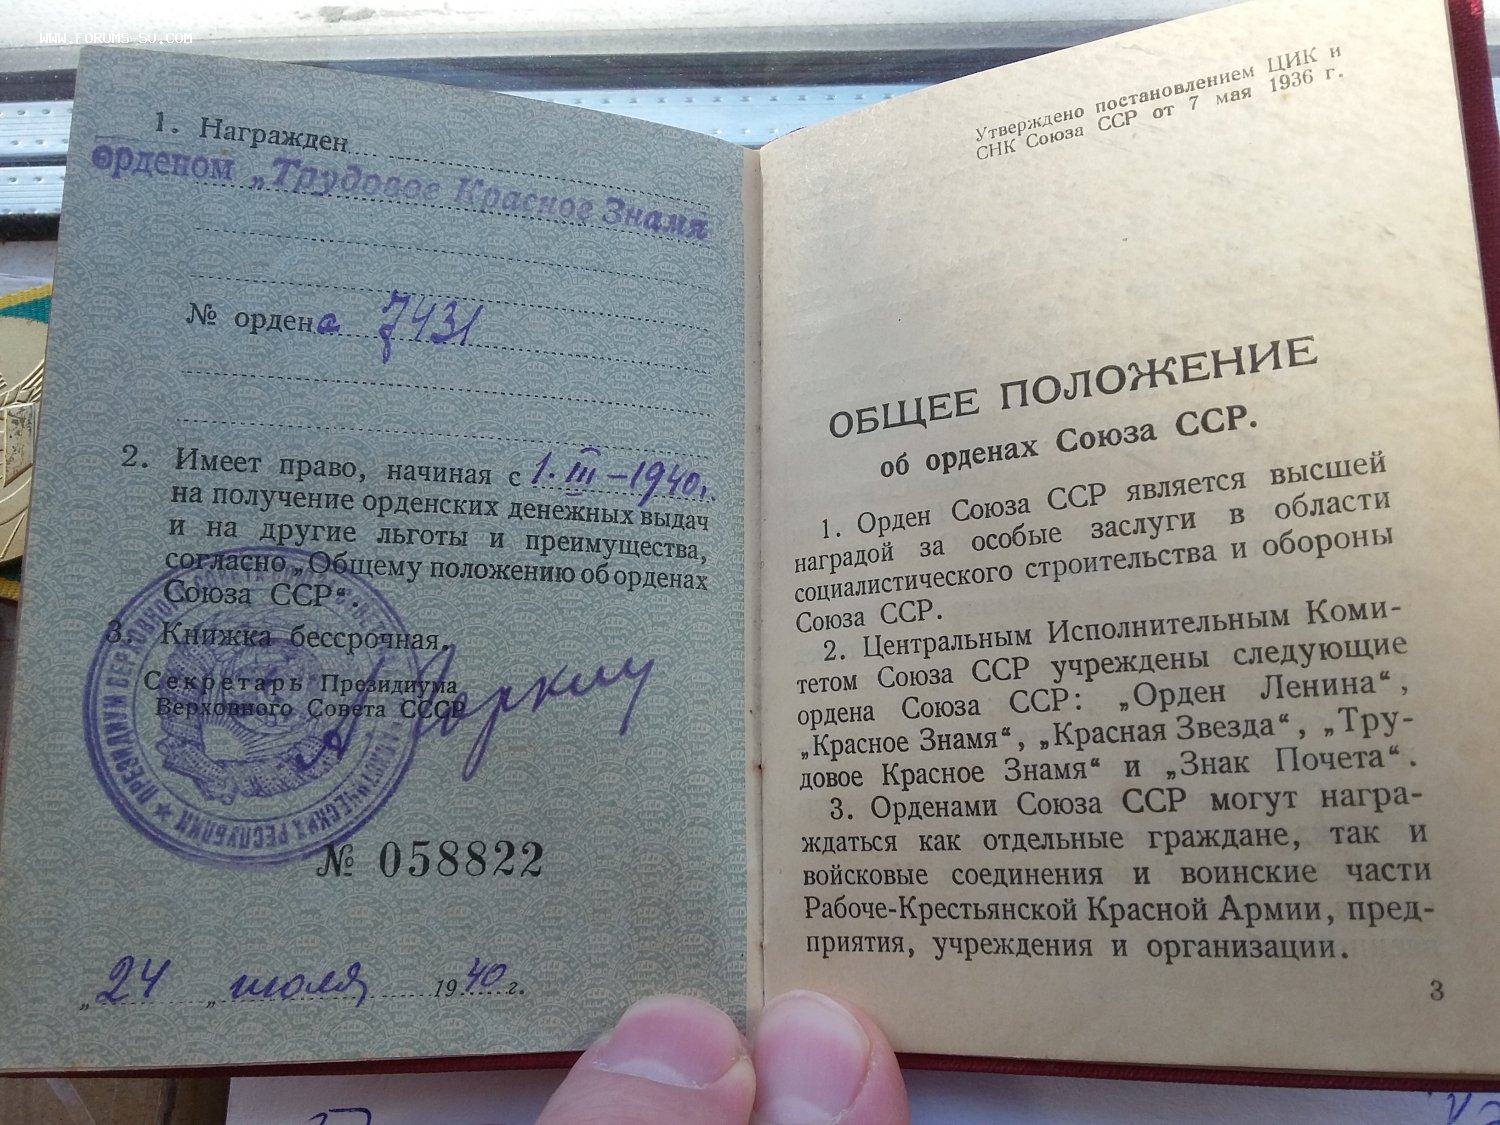 WWW.FORUMS-SU.COM
1. Награжден
орденом „Трудовое Красное Знамя
№ ордена 7431
2. Имеет право, начиная с 1. III – 1940 г.
на получение орденских денежных выдач
и на другие льготы и преимущества,
согласно „Общему положению об орденах
Союза ССР“.
3. Книжка бессрочная.
Секретарь Президиума
Верховного Совета СССР
ПРЕЗИДИУМ ВЕРХОВНОГО СОВЕТА
СОЦИАЛИСТИЧЕСКИХ РЕСПУБЛИК
№ 058822
„24 „ июля 1940 г.
Утверждено постановлением ЦИК и
СНК Союза ССР от 7 мая 1936 г.
ОБЩЕЕ ПОЛОЖЕНИЕ
об орденах Союза ССР.
1. Орден Союза ССР является высшей
наградой за особые заслуги в области
социалистического строительства и обороны
Союза ССР.
2. Центральным Исполнительным Коми-
тетом Союза ССР учреждены следующие
ордена Союза ССР: „Орден Ленина“,
„Красное Знамя“, „Красная Звезда“, „Тру-
довое Красное Знамя“ и „Знак Почета“.
3. Орденами Союза ССР могут награ-
ждаться как отдельные граждане, так и
войсковые соединения и воинские части
Рабоче-Крестьянской Красной Армии, пред-
приятия, учреждения и организации.
3